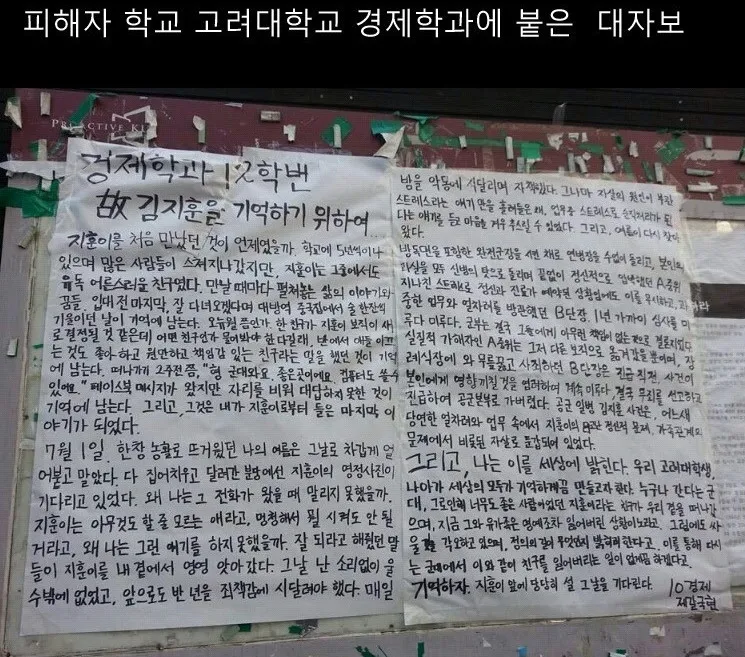 피해자 학교 고려대학교 경제학과에 붙은 대자보
PROACTIVE
경제학과 12학번
故 김지훈을 기억하기 위하여...
지훈이를 처음 만났던 것이 언제였을까. 학교에 5년씩이나
있으며 많은 사람들이 스쳐지나갔지만, 지훈이는 그중에서도
유독 어른스러운 친구였다. 만날 때마다 펼쳐놓는 삶의 이야기와
꿈들. 입대 전 마지막, 잘 다녀오겠다며 대방역 중국집에서 술 한잔씩
기울이던 날이 기억에 남는다. 한 친구가 지훈이 보직이 새
로 결정될 것 같은데 어떤 친구인가 물어봐야 한다길래, 넌
는 것도 좋아하고 원만하고 책임감 있는 친구라는 말을 했던 것이 기억
에 남는다. 떠나가기 2주전쯤, "형 군대와요. 좋은곳이에요. 컴퓨터도 쓸수
있에요." 페이스북 메시지가 왔지만 자리를 비워 대답하지 못한 것이
기억에 남는다. 그리고, 그것은 내가 지훈이로부터 들은 마지막 이
야기가 되었다.
7월 1일. 한창 농활로 뜨거웠던 나의 여름은 그날로 차갑게 얼
어붙고 말았다. 다 집어치우고 달려간 분당에선 지훈이의 영정사진이
기다리고 있었다. 왜 나는 그 전화가 왔을 때 말리지 못했을까.
지훈이는 아무것도 할 줄 모르는 애라고, 멍청해서 뭘 시켜도 안 될
거라고, 왜 나는 그런 얘기를 하지 못했을까. 잘 되라고 해줬던 말
들이 지훈이를 내 곁에서 영영 앗아갔다. 그날 난 소리없이 울
수밖에 없었고, 앞으로도 반 년을 죄책감에 시달려야 했다. 매일
밤을 악몽에 시달리며 자책했다. 그나마 자살의 원인이 부관
스트레스라는 얘기만을 흘려들은 채, 업무중 스트레스로 순직처리가 된
다는 얘기를 듣고 마음을 겨우 추스릴 수 있었다. 그리고, 여름이 다시 찾아
왔다.
방독면을 포함한 완전군장을 시킨 채로 연병장을 수없이 돌리고, 본인의
과실을 모두 신병의 탓으로 돌리며 끝없이 정신적으로 압박했던 A중위
지나친 스트레스로 정신과 진료가 예약된 상황임에도 이를 무시하고, 과
중한 업무와 얼차려를 방관했던 B단장. 1년 가까이 심사를 미
루다 미루다. 군부는 결국 그들에게 아무런 책임이 없는 것으로 결론지었다.
실질적 가해자인 A중위는 그저 다른 보직으로 옮겨갔을 뿐이며, 장
례식장에 와 무릎꿇고 사죄하던 B단장은 진급직전, 사건이
본인에게 영향끼칠 것을 염려하여 계속 미루다, 결국 무죄를 선고하고
진급하여 공군본부로 가버렸다. 공군 일병 김지훈 사건은, 어느새
당연한 얼차려와 업무 속에서 지훈이의 정신적 문제, 가족관계의
문제에서 비롯된 자살로 둔갑되어 있었다.
그리고, 나는 이를 세상에 밝힌다. 우리 고려대학생,
나아가 세상의 모두가 기억하게끔 만들고자 한다. 누구나 간다는 군
대, 그로인해 너무도 좋은 사람이었던 지훈이라는 친구가 우리 곁을 떠나갔
으며, 지금 그의 유가족은 명예조차 잃어버린 상황이노라고, 그럼에도 싸
움을 각오하고 있으며, 정의의 길이 무엇인지 밝혀려 한다고. 이를 통해 다시
는 군대에서 이와 같이 친구를 잃어버리는 일이 없게끔 하겠다고.
기억하자. 지훈이 앞에 당당히 설 그날을 기다린다.
10경제
제갈국현